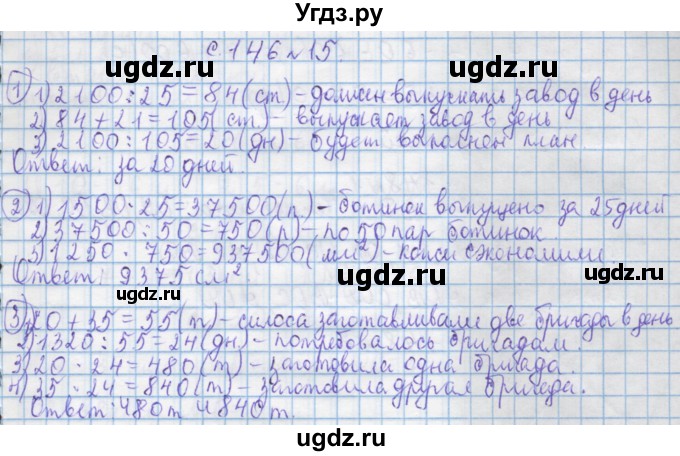 Угдз.ру
с. 146 N 15.
1) 1) 2100 : 25 = 84 (ст) – должен выпускать завод в день
2) 84 + 21 = 105 (ст) – выпускает завод в день
3) 2100 : 105 = 20 (дн) – будет выполнен план
Ответ: за 20 дней.
2) 1) 1500 · 25 = 37500 (п) – ботинок выпущено за 25 дней
2) 37500 : 50 = 750 (р) – по 50 пар ботинок
3) 1250 · 750 = 937500 (мм²) – кожи сэкономили
Ответ: 9375 см².
3) 1) 20 + 35 = 55 (т) – силоса заготавливали две бригады в день
2) 1320 : 55 = 24 (дн) – потребовалось бригадам.
3) 20 · 24 = 480 (т) – заготовила одна бригада.
4) 35 · 24 = 840 (т) – заготовила другая бригада.
Ответ: 480 т и 840 т.
ugdz.ru
ugdz.ru
ugdz.ru
ugdz.ru
ugdz.ru
ugdz.ru
ugdz.ru
ugdz.ru
ugdz.ru
ugdz.ru
ugdz.ru
ugdz.ru
ugdz.ru